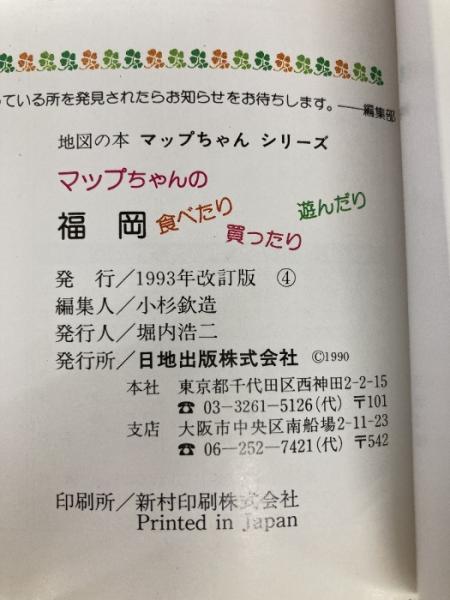 ている所を発見されたらお知らせをお待ちします。──編集部
地図の本 マップちゃん シリーズ
マップちゃんの
福 岡 食べたり 買ったり 遊んだり
発 行／1993年改訂版 ④
編集人／小杉欽造
発行人／堀内浩二
発行所／日地出版株式会社 ©1990
本社 東京都千代田区西神田2-2-15
☎ 03-3261-5126(代) 〒101
支店 大阪市中央区南船場2-11-23
☎ 06-252-7421(代) 〒542
印刷所／新村印刷株式会社
Printed in Japan